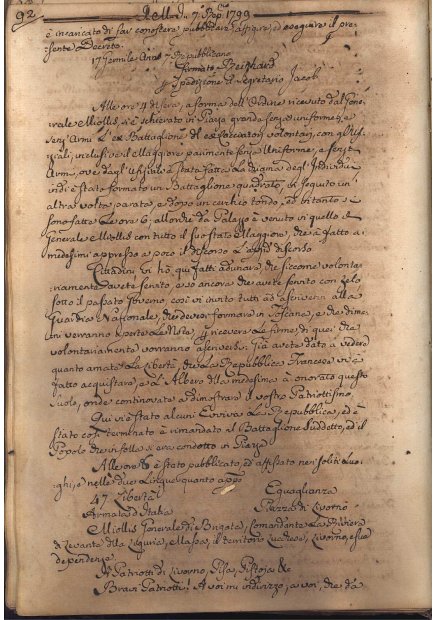 92
7 1799
è incaricato di far constare pubblicare, affigere, ed eseguire il pre-
sente Decreto.
17 Germile Anno 7 Repubblicano
firmato Reinhard
Spedizione Segretario Jacob
Alle ore 4 di sera, a forma dell'Ordine ricevuto dal Gene-
rale Miollis si è schierato in Piazza grande senza uniforme, e
senz'Armi L'ex Battaglione de Cacciatori volontarj, con gl'Uffi-
ziali, inclusive il Maggiore parimente senza Uniforme, e senz'
Armi, ove dagl'Uffiziali è stata fatta La degl'Individui
indi è stato formato un Battaglione quadrato, in seguito in
altra volta parata, e dopo un cerchio tondo, ed in tanto si
sono fatte Le ore 6; allorche da Palazzo è venuto ivi quello il
Generale Miollis con tutto il suo Stato Maggiore, che à fatto a
medesimi appresso a poco il discorso
Cittadini vi hò qui fatti adunare, che siccome volonta-
riamente avete servito, e so ancora che avete servito con zelo
sotto il passato Governo, così vi invito tutti ad ascrivervi alla
Guardia Nazionale, che devesi formare in Toscana, e che dime-
ni verranno aperte Le Note, a ricevere Le firme, di quei che
volontariamente vorranno ascriversi: Già avete dato a vedere
quanto amate La Libertà, che La Repubblica Francese vi à
fatto acquistare, e L'Albero della medesima à onorato questo
suolo, onde continovate a dimostrare il vostro Patriottismo.
Qui vi è stato alcuni Evviva La Repubblica, ed è
stato così terminato e rimandato il Battaglione Suddetto, ed il
Popolo che in folla si era condotto in Piazza
Alle ore 8 è stato pubblicato, ed affissato nei soliti Luo-
ghi, e nelle due Lingue quanto appo
47 Libertà Eguaglianza
Armata d'Italia Piazza di Livorno
Miollis Generale di Brigata, Comandante La Riviera
di Levante della Liguria, Massa, il territorio Lucchese, Livorno, e sue
dependenze
A Patriotti di Livorno, Pisa, Pistoia &
Bravi Patriotti! A voi mi indirizzo, a voi, che da